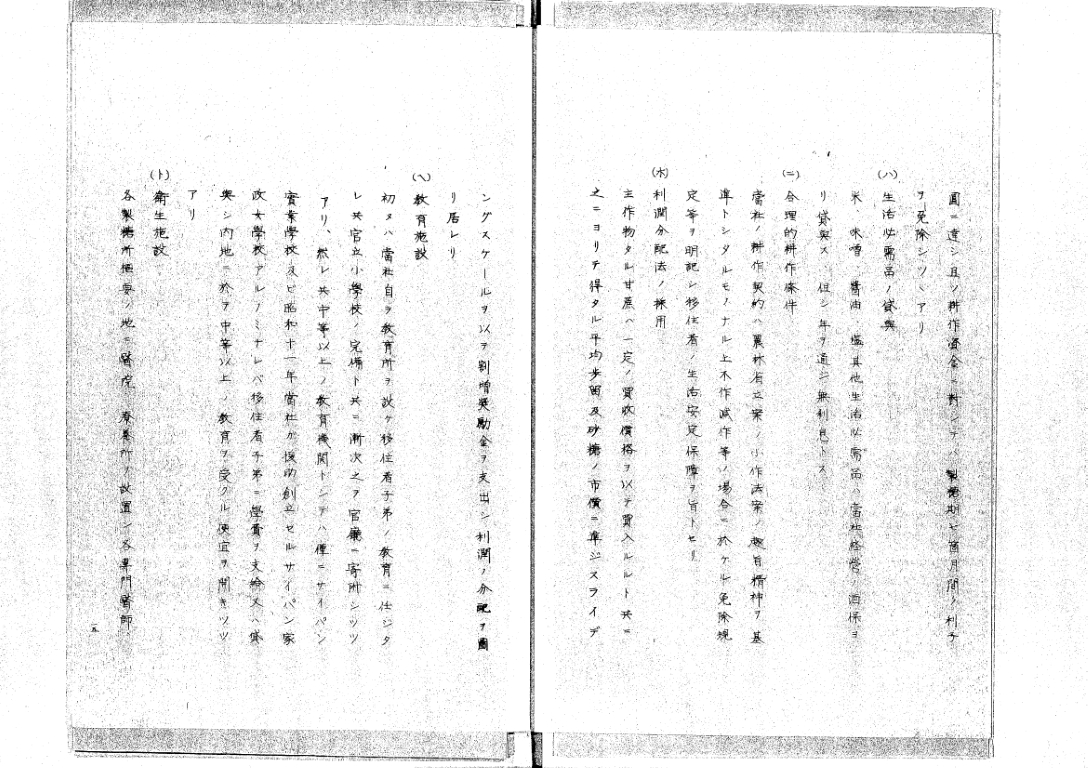 圓ニ達シ且ツ耕作資金ニ對シテハ製糖期七箇月間ノ利子
ヲ免除シツヽアリ
(ハ) 生活必需品ノ貸與
米、味噌、醤油、鹽其他生活必需品ハ當社經營ノ酒保ヨ
リ貸與ス 但シ年ヲ通ジ無利息トス
(ニ) 合理的耕作條件
當社ノ耕作契約ハ農林省立案ノ小作法案ノ趣旨精神ヲ基
準トシタルモノナル上不作減作等ノ場合ニ於ケル免除規
定等ヲ明記シ移住者ノ生活安定保障ヲ旨トセリ
(ホ) 利潤分配法ノ採用
主作物タル甘蔗ハ一定ノ買收價格ヲ以テ買入ルルト共ニ
之ニヨリテ得タル平均歩留及砂糖ノ市價ニ準ジスライデ
ングスケールヲ以テ割増奬勵金ヲ支出シ利潤ノ分配ヲ圖
リ居レリ
(ヘ) 教育施設
初メハ當社自ラ教育所ヲ設ケ移住者子弟ノ教育ニ任ジタ
レ共官立小學校ノ完備ト共ニ漸次之ヲ官廳ニ寄附シツツ
アリ、然レ共中等以上ノ教育機関トシテハ僅ニサイパン
實業學校及ビ昭和十一年當社ガ援助創立セルサイパン家
政女學校アルノミナレバ移住者子弟ニ學資ヲ支給又ハ貸
與シ内地ニ於テ中等以上ノ教育ヲ受クル便宜ヲ開キツツ
アリ
(ト) 衛生施設
各製糖所樞要ノ地ニ醫院、療養所ヲ設置シ各専門醫師
五